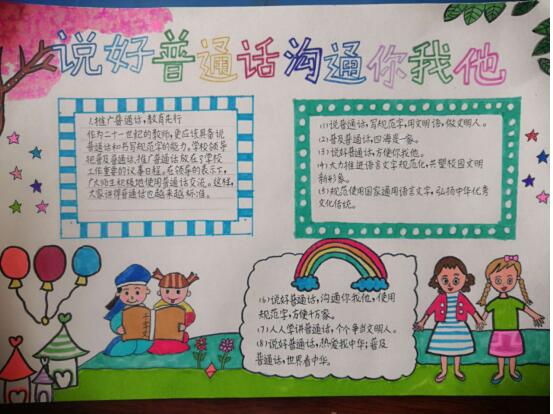 说好普通话沟通你我他
1.推广普通话,教育先行
作为二十一世纪的教师,更应该具备说
普通话和书写规范字的能力。学校领导
把普及普通话、推广普通话放在了学校
工作重要的议事日程。在领导的表示下,
广大师生积极地使用普通话交流。这样,
大家讲得普通话也越来越标准。
(1)说普通话,写规范字,用文明语,做文明人。
(2)普及普通话,四海是一家。
(3)说好普通话,方便你我他。
(4)大力推进语言文字规范化,共塑校园文明
新形象。
(5)规范使用国家通用语言文字,弘扬中华优秀
文化传统。
(6)说好普通话,沟通你我他,使用
规范字,方便千万家。
(7)人人学讲普通话,个个争当文明人。
(8)说好普通话,热爱我中华;普及
普通话,世界看中华。
千字文